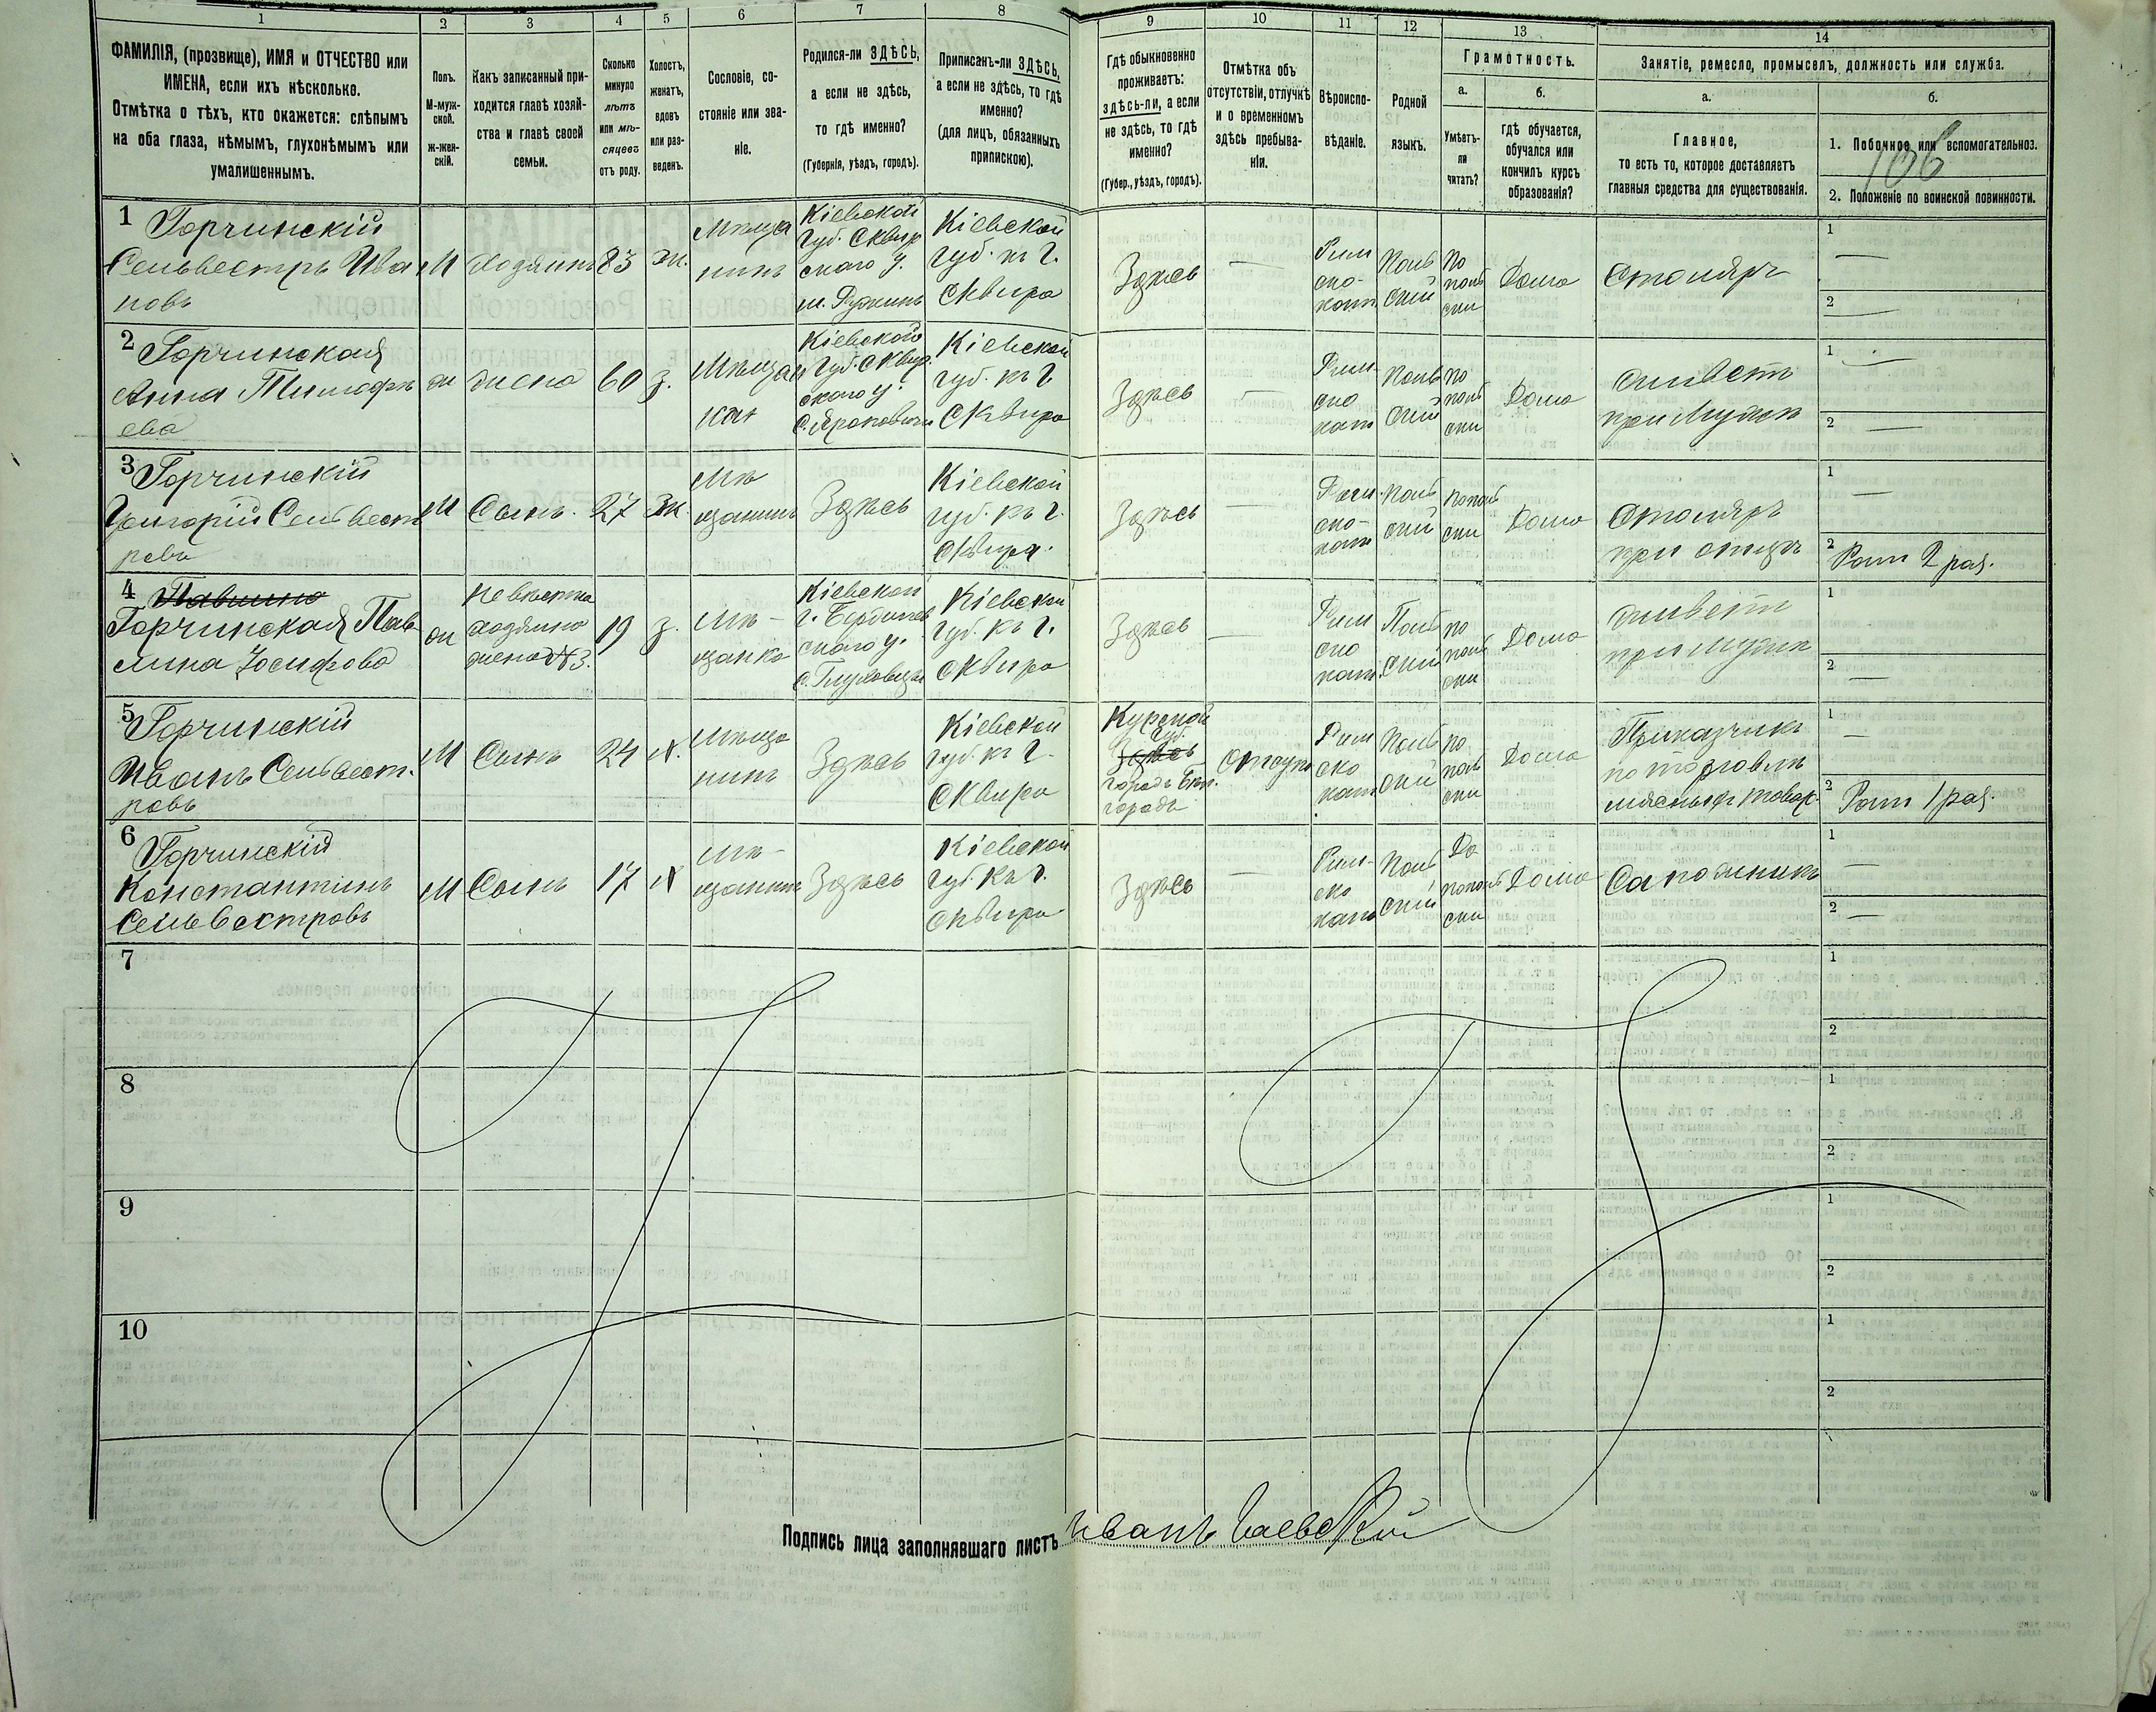 1 2 3 4 5 6 7 8 9 10 11 12 13 14
ФАМИЛІЯ, (прозвище), ИМЯ и ОТЧЕСТВО или
ИМЕНА, если ихъ нѣсколько.
Отмѣтка о тѣхъ, кто окажется: слѣпымъ
на оба глаза, нѣмымъ, глухонѣмымъ или
умалишеннымъ.
Полъ.
М-муж-
ской.
ж-жен-
скій.
Какъ записанный при-
ходится главѣ хозяй-
ства и главѣ своей
семьи.
Сколько
минуло
лѣтъ
или мѣ-
сяцевъ
отъ роду.
Холостъ,
женатъ,
вдовъ
или раз-
веденъ.
Сословіе, со-
стояніе или зва-
ніе.
Родился-ли ЗДѢСЬ,
а если не здѣсь,
то гдѣ именно?
(Губернія, уѣздъ, городъ).
Приписанъ-ли ЗДѢСЬ,
а если не здѣсь, то гдѣ
именно?
(для лицъ, обязанныхъ
припискою).
Гдѣ обыкновенно
проживаетъ:
здѣсь-ли, а если
не здѣсь, то гдѣ
именно?
(Губер., уѣздъ, городъ).
Отмѣтка объ
отсутствіи, отлучкѣ
и о временномъ
здѣсь пребыва-
ніи.
Вѣроиспо-
вѣданіе.
Родной
языкъ.
Грамотность.
а.
Умѣетъ-
ли
читать?
б.
гдѣ обучается,
обучался или
кончилъ курсъ
образованія?
Занятіе, ремесло, промыселъ, должность или служба.
а.
Главное,
то есть то, которое доставляетъ
главныя средства для существованія.
б.
1. Побочное или вспомогательноз.
106
2. Положеніе по воинской повинности.
1
Горчинскій
Сельвестръ Ива
новъ
М
хозяинъ
83
ж.
Мѣща
нинъ
Кіевской
Губ. Сквир
скаго у.
м. Ружинъ
Кіевской
губ. къ г.
Сквира
Здѣсь
Рим
ско-
кат.
Поль
скій
По
поль
ски
Дома
Столяръ
1
2
2
Горчинская
Анна Тимофѣ
ева
ж
жена
60
з.
Мѣщан
кая
Кіевской
Губ. Сквир.
скаго у.
Кіевской
губ. къ г.
Сквира
Здѣсь
Рим
ско
кат
Поль
скій
по
поль
ски
Дома
живетъ
при Мужѣ
1
2
3
Горчинскій
Григорій Сельвест
ровъ
М
Сынъ.
27
Ж.
Мѣ
щанинъ
Здѣсь
Кіевской
губ. къ г.
Сквира.
Здѣсь
Рим.
ско-
кат
Поль
скій
по поль
ски
Дома
Столяръ
при отцѣ
1
2
Рат 2 раз.
4
Горчинская Пав
лина Іосифова
ж
Невѣстка
хозяина
жена №3.
19
з.
Мѣ-
щанка
Кіевской
г. Бердичев
скаго у.
Кіевской
губ. къ г.
Сквира
Здѣсь
Рим
ско
кат.
Поль
скій
по
поль
ски
Дома
живетъ
при мужѣ
1
2
5
Горчинскій
Иванъ Сельвест.
ровъ
М
Сынъ
24
х.
Мѣща
нинъ
Здѣсь
Кіевской
губ. къ г.
Сквира
Курской
губ.
Здѣсь
городъ Бѣл.
городъ
Рим
ско
кат
Поль
скій
по
поль
ски
Дома
Приказчикъ
по торговлѣ
1
2
Рат 1 раз.
6
Горчинскій
Константинъ
Сельвестровъ
М
Сынъ
17
х
Мѣ-
щанинъ
Здѣсь
Кіевской
губ. къ г.
Сквира
Здѣсь
Рим-
ско
кат
Поль
скій
По
поль
ски
Дома
Сапожникъ
1
2
7
1
2
8
1
2
9
1
2
10
1
2
Подпись лица заполнявшаго листъ